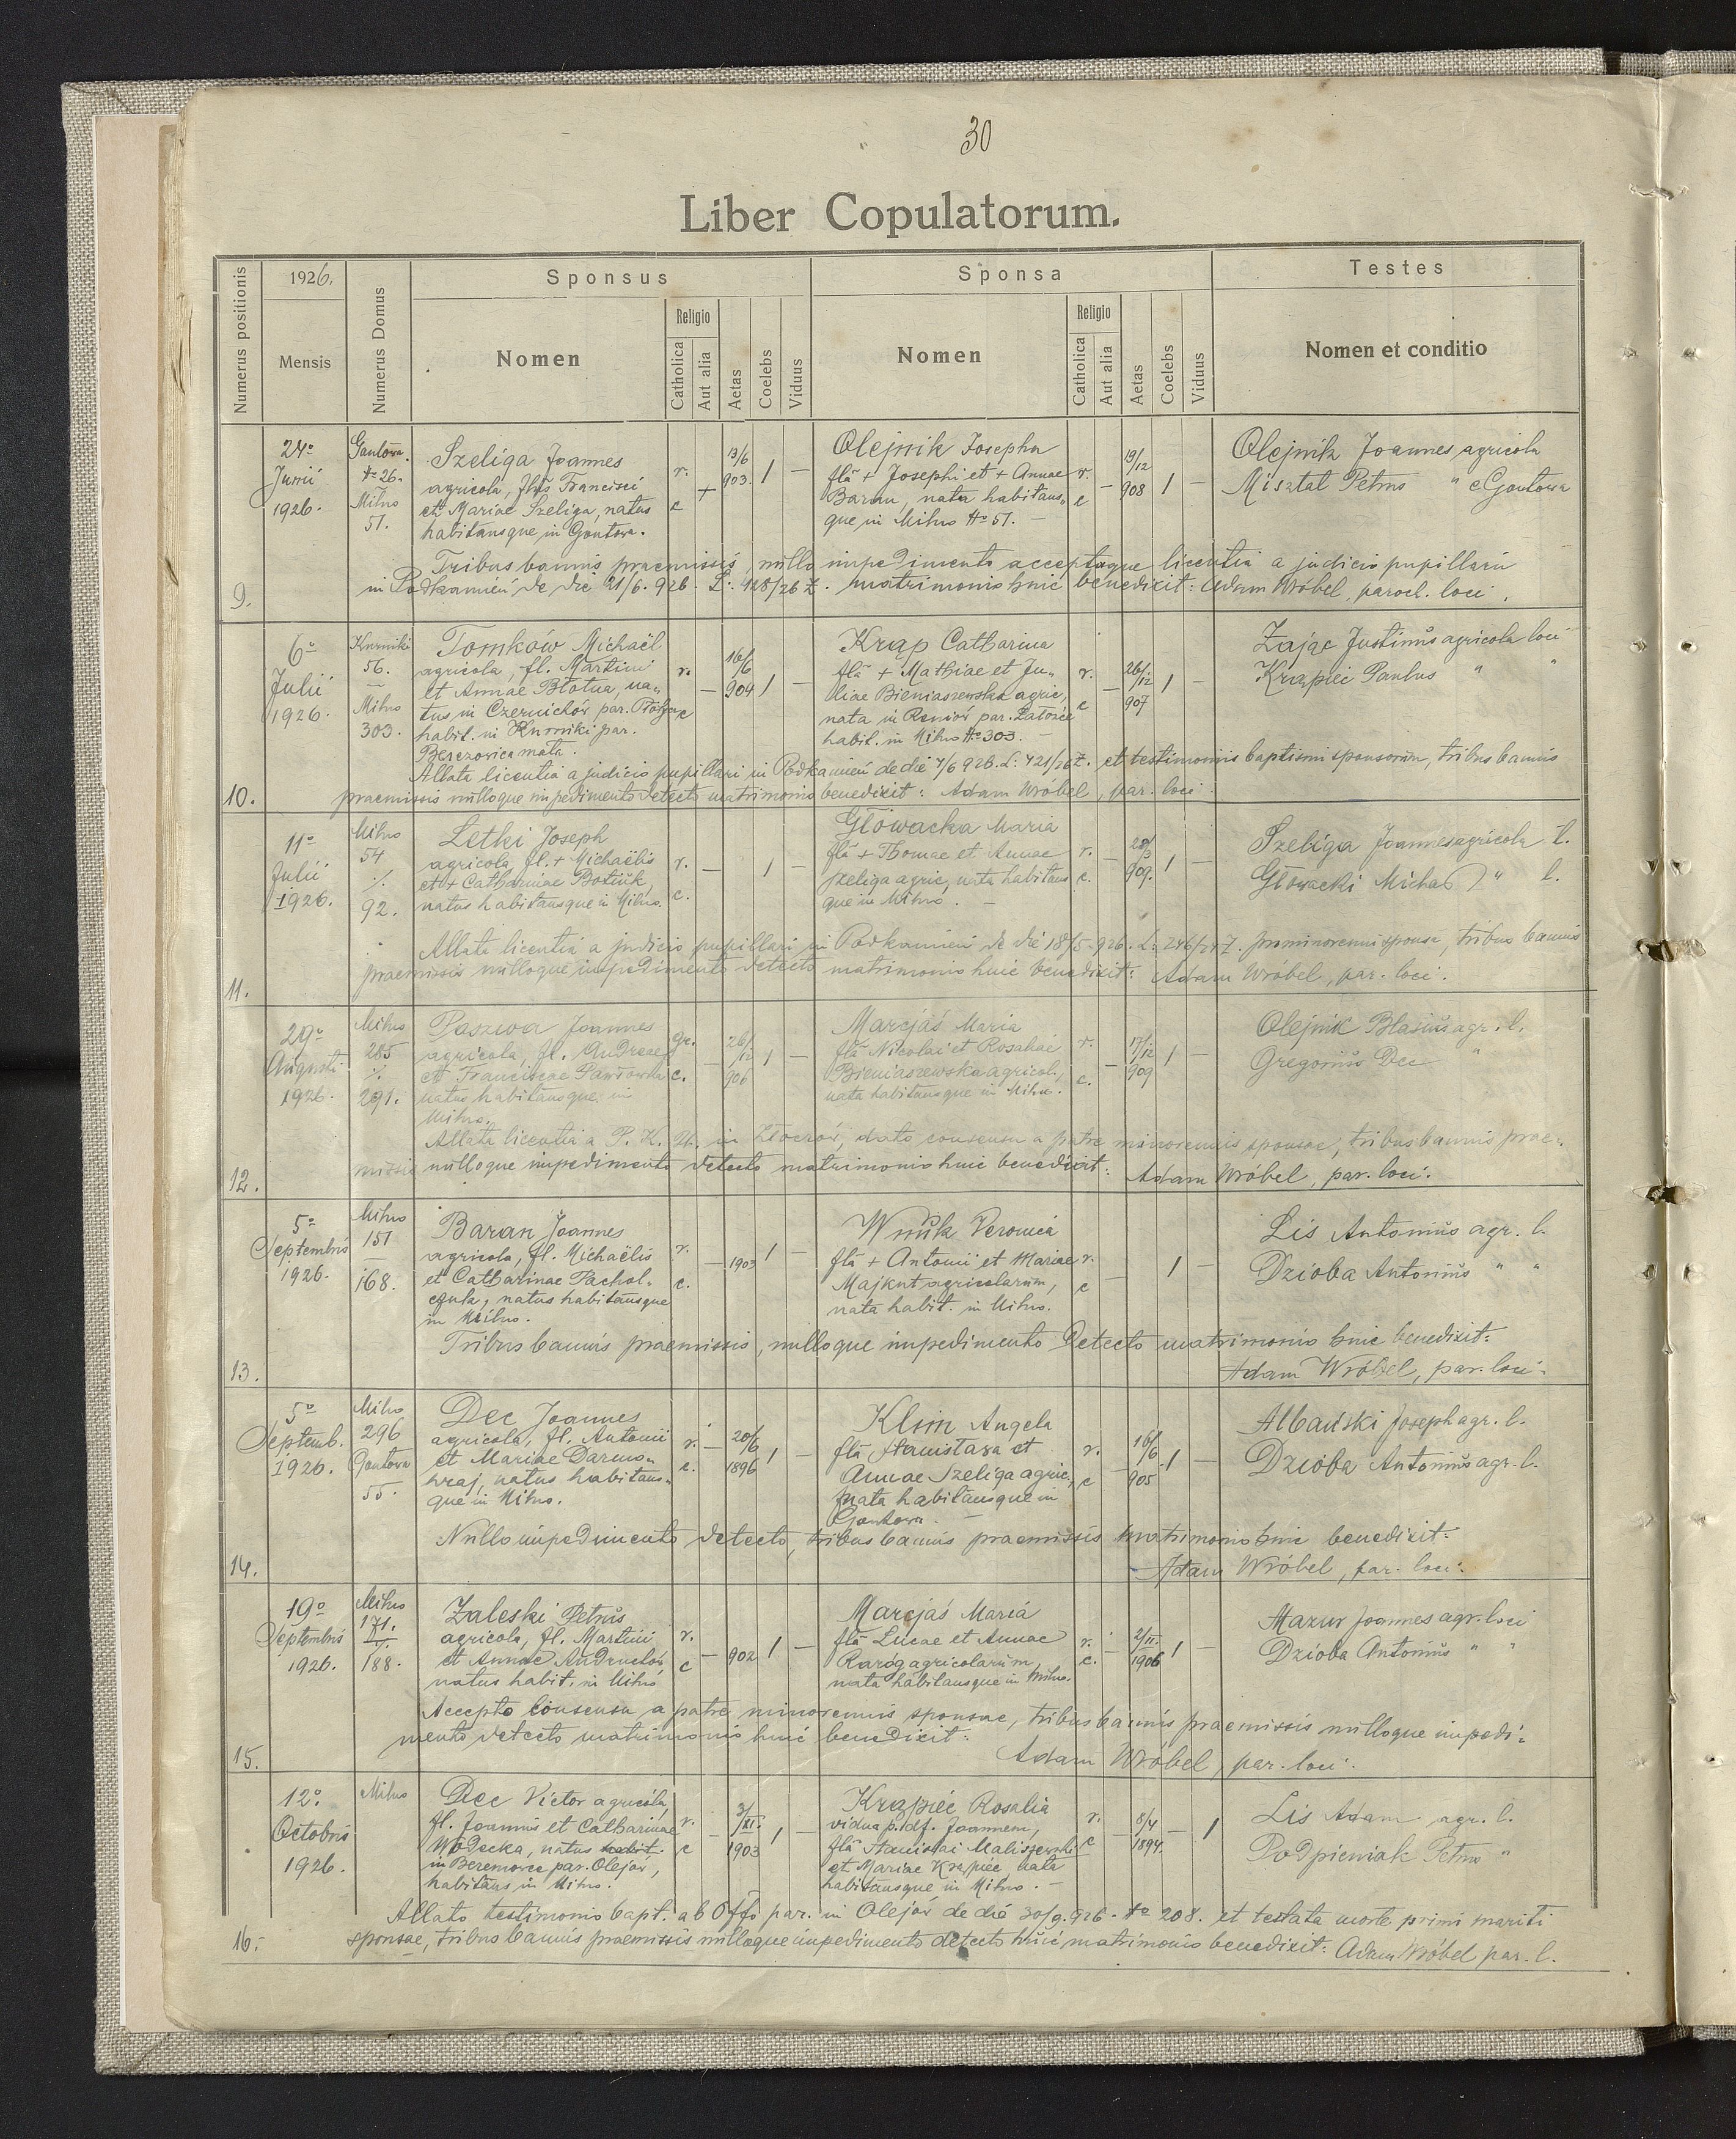 30
Liber Copulatorum.
Numerus positionis
1926.
Mensis
Numerus Domus
Sponsus
Nomen
Religio
Catholica
Aut alia
Aetas
Coelebs
Viduus
Sponsa
Nomen
Religio
Catholica
Aut alia
Aetas
Coelebs
Viduus
Testes
Nomen et conditio
9.
24º
Junii
1926.
Gontowa
№ 26.
Milno
51.
Szeliga Joannes
agricola, fls Francisci
et Mariae Szeliga, natus
habitansque in Gontowa.
r.
c
+
13/6
903.
1
—
Olejnik Josepha
fla + Josephi et + Annae
Baran, nata habitans-
que in Milno № 51. —
r.
c
—
19/12
908
1
—
Olejnik Joannes agricola
Misztal Petrus " e Gontowa
Tribus bannis praemissis, nullo impedimento acceptaque licentia a judicio pupillari
in Podkamień de die 21/6. 926. L: 428/26 Z. matrimonio huic benedixit: Adam Wróbel, paroch. loci.
10.
6º
Julii
1926.
Kurniki
56.
—
Milno
303.
Tomków Michaël
agricola, fl. Martini
et Annae Błotna, na-
tus in Czernichów par. Płotycza
habit. in Kurniki par.
Berezowica mała.
r.
c
—
16/6
904
1
—
Krąp Catharina
fla + Mathiae et Ju-
liae Bieniaszewska agric,
nata in Reniów par. Załoźce
habit. in Milno № 303. —
r.
c
—
26/12
907
1
—
Zając Justinus agricola loci
Krąpiec Paulus " "
Allata licentia a judicio pupillari in Podkamień de die 7/6 926. L: 421/26 Z. et testimoniis baptismi sponsorum, tribus bannis
praemissis nulloque impedimento detecto matrimonio benedixit: Adam Wróbel, par. loci.
11.
11º
Julii
1926.
Milno
54
./.
92.
Letki Joseph
agricola, fl. + Michaëlis
et + Catharinae Botiuk,
natus habitansque in Milno.
r.
c.
—
1
—
Głowacka Maria
fla + Thomae et Annae
Szeliga agric, nata habitans
que in Milno. —
r.
c.
—
28/3
909.
1
—
Szeliga Joannes agricola l.
Głowacki Michaël " l.
Allata licentia a judicio pupillari in Podkamień de die 18/5. 926. L: 246/ Z. pro minorenni sponsa, tribus bannis
praemissis nulloque impedimento detecto matrimonio huic benedixit: Adam Wróbel, par. loci.
12.
29º
Augusti
1926.
Milno
285
./.
291.
Paszwa Joannes
agricola, fl. Andreae
et Franciscae Pawłowska
natus habitansque in
Milno.
gr.
c.
—
26/12
906
1
—
Marcjaś Maria
fla Nicolai et Rosaliae
Bieniaszewska agricol.,
nata habitansque in Milno.
r.
c.
—
17/12
909
1
—
Olejnik Blasius agr. l.
Gregorius Dec "
Allata licentia a P. K. U. in Złoczów, dato consensu a patre minorennis sponsae, tribus bannis prae-
missis nulloque impedimento detecto matrimonio huic benedixit: Adam Wróbel, par. loci.
13.
5º
Septembris
1926.
Milno
151
168.
Baran Joannes
agricola, fl. Michaëlis
et Catharinae Pachol-
czuk, natus habitansque
in Milno.
r.
c.
—
1903
1
—
Wnuk Veronica
fla + Antonii et Mariae
Majkut agricolarum,
nata habit. in Milno.
r.
c
—
1
—
Lis Antonius agr. l.
Dzioba Antonius " "
Tribus bannis praemissis, nulloque impedimento detecto matrimonio huic benedixit:
Adam Wróbel, par. loci.
14.
5º
Septemb.
1926.
Milno
296
Gontowa
55.
Dec Joannes
agricola, fl. Antonii
et Mariae Darmo-
hraj, natus habitans-
que in Milno.
r.
c.
—
20/6
1896
1
—
Klim Angela
fla Stanislaza et
Annae Szeliga agric,
nata habitansque in
Gontowa. —
r.
c
—
16/6
905
1
—
Albański Joseph agr. l.
Dzioba Antonius agr. l.
Nullo impedimento detecto, tribus bannis praemissis matrimonio huic benedixit:
Adam Wróbel, par. loci.
15.
19º
Septembris
1926.
Milno
171.
./.
188.
Zaleski Petrus
agricola, fl. Martini
et Annae Andruchów
natus habit. in Milno
r.
c
—
902
1
—
Marcjaś Maria
fla Lucae et Annae
Raróg agricolarum,
nata habitansque in Milno.
r.
c.
—
2/II.
1906
1
—
Mazur Joannes agr. loci
Dzioba Antonius " "
Accepto consensu a patre minorennis sponsae, tribus bannis praemissis nulloque impedi-
mento detecto matrimonio huic benedixit:
Adam Wróbel, par. loci.
16.
12º.
Octobris
1926.
Milno
Dec Victor agricola,
fl. Joannis et Catharinae
Wodecka, natus habit.
in Beremowce par. Olejów,
habitans in Milno.
r.
c
—
3/XI.
1903
1
—
Krąpiec Rosalia
vidua p. df. Joannem,
fla Stanislai Maliszewski
et Mariae Krąpiec, nata
habitansque in Milno. —
r.
c
—
8/4
1894.
—
1
Lis Adam agr. l.
Podpieniak Petrus "
Allato testimonio bapt. ab Offo par. in Olejów de die 30/9. 926. № 208. et testata morte primi mariti
sponsae, tribus bannis praemissis nulloque impedimento detecto huic matrimonio benedixit: Adam Wróbel par. l.